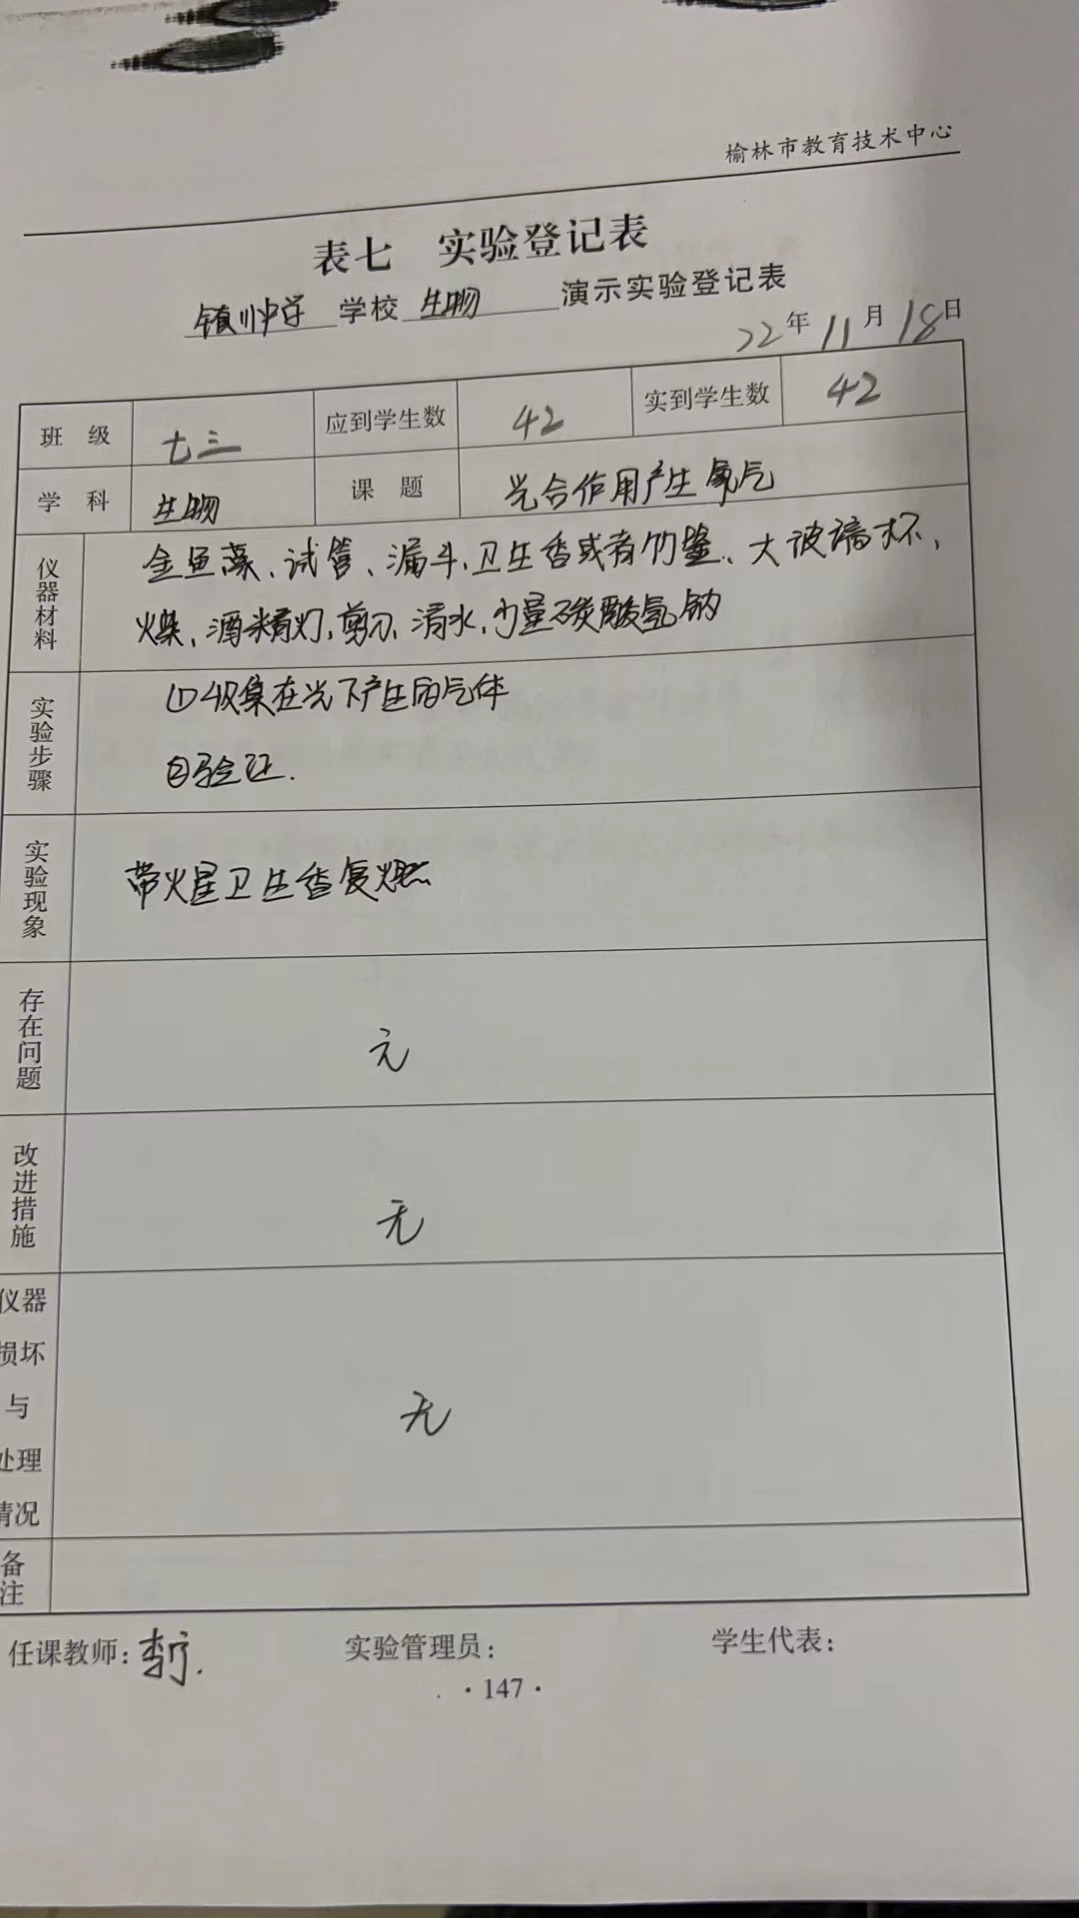 榆林市教育技术中心
表七 实验登记表
镇川中学 学校 生物 演示实验登记表
22年11月18日
班级 七三 应到学生数 42 实到学生数 42
学科 生物 课题 光合作用产生氧气
仪器材料 金鱼藻、试管、漏斗、卫生香或者竹签、大玻璃杯、
火柴、酒精灯、剪刀、清水、少量碳酸氢钠
实验步骤 ①收集在光下产生的气体
②验证.
实验现象 带火星卫生香复燃
存在问题 无
改进措施 无
仪器损坏与处理情况 无
备注
任课教师: 实验管理员: 学生代表:
·147·